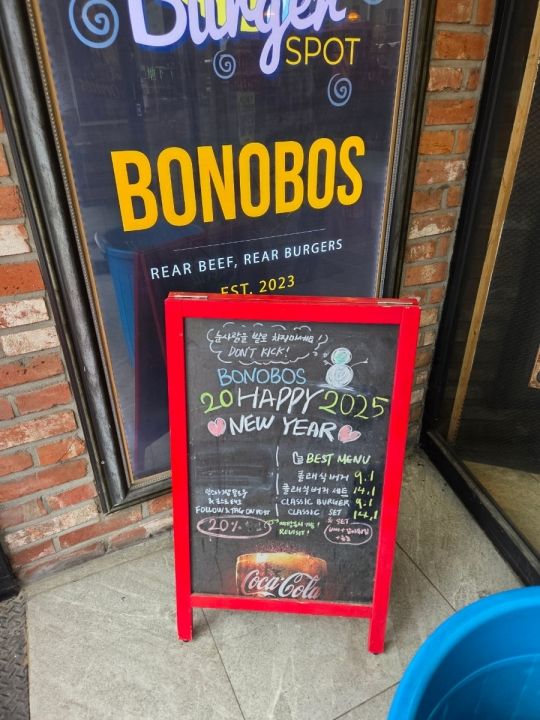 Burger
SPOT
BONOBOS
REAR BEEF, REAR BURGERS
EST. 2023
눈사람을 발로 차지마세요!
DON'T KICK!
BONOBOS
20 HAPPY 2025
NEW YEAR
BEST MENU
클래식버거 9.1
클래식버거 세트 14.1
CLASSIC BURGER 9.1
CLASSIC SET 14.1
FOLLOW & TAG ON POST
20%
REVISIT!
SET
Coca-Cola